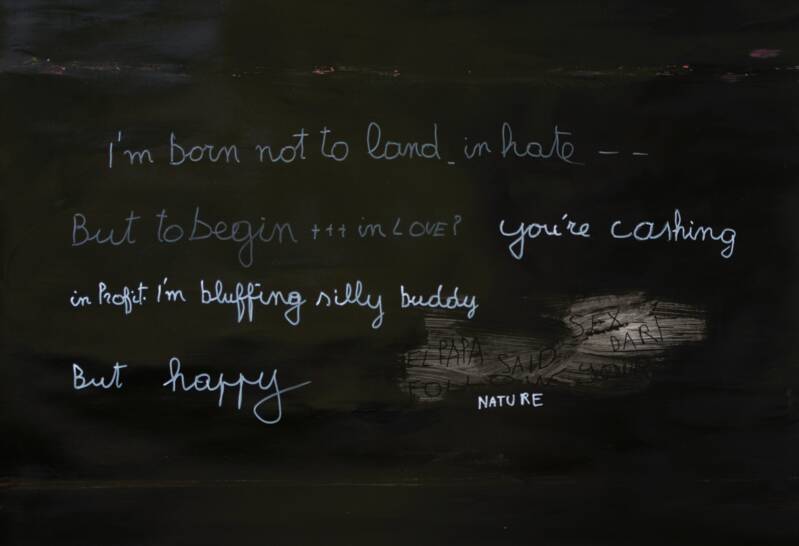 I'm born not to land_in hate – –
But to begin +++ in LOVE? you're cashing
in Profit. I'm bluffing silly buddy
But happy
SEX
EL PAPA SAID DART
YOUR
NATURE